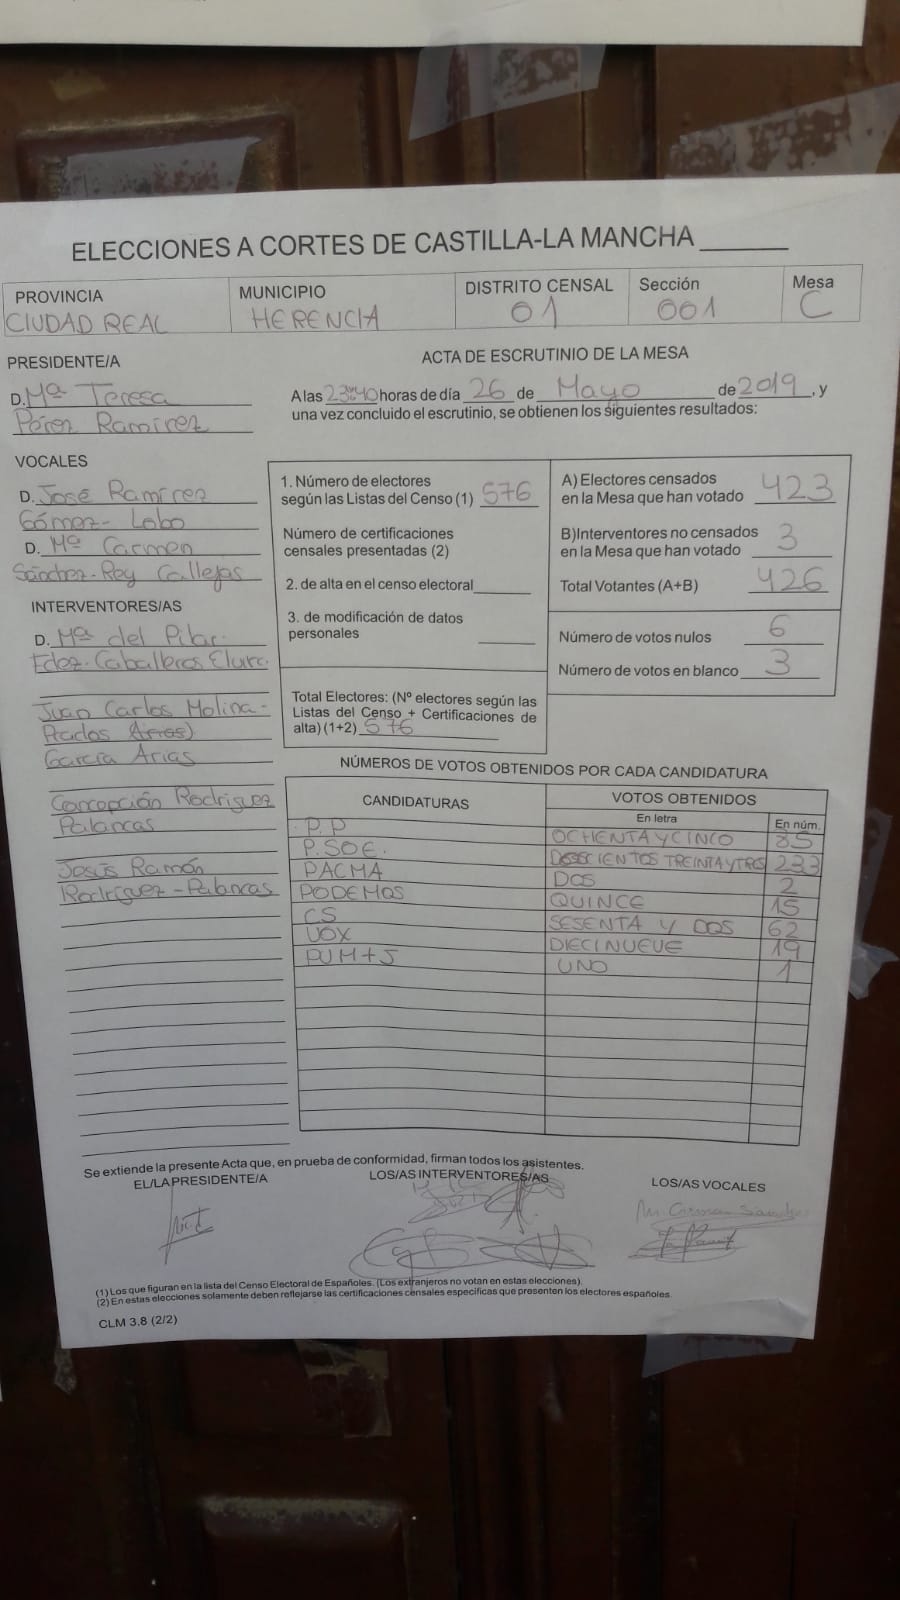 ELECCIONES A CORTES DE CASTILLA-LA MANCHA
PROVINCIA
CIUDAD REAL
MUNICIPIO
HERENCIA
DISTRITO CENSAL
01
Sección
001
Mesa
C
PRESIDENTE/A
D. Mª Teresa
Pérez Ramírez
VOCALES
D. José Ramírez
Gómez-Lobo
D. Mª Carmen
Sánchez-Rey Callejas
INTERVENTORES/AS
D. Mª del Pilar
Caballeros
Juan Carlos Molina-
Prados Arias)
García Arias
Concepción Rodríguez
Palancas
Jesús Ramón
Rodríguez-Palancas
ACTA DE ESCRUTINIO DE LA MESA
A las horas de día 26 de Mayo de 2019, y
una vez concluido el escrutinio, se obtienen los siguientes resultados:
1. Número de electores
según las Listas del Censo (1) 576
Número de certificaciones
censales presentadas (2)
2. de alta en el censo electoral
3. de modificación de datos
personales
Total Electores: (Nº electores según las
Listas del Censo + Certificaciones de
alta) (1+2) 576
A) Electores censados
en la Mesa que han votado 423
B)Interventores no censados
en la Mesa que han votado 3
Total Votantes (A+B) 426
Número de votos nulos 6
Número de votos en blanco 3
NÚMEROS DE VOTOS OBTENIDOS POR CADA CANDIDATURA
CANDIDATURAS
VOTOS OBTENIDOS
En letra
En núm.
P.P OCHENTA Y CINCO 85
P.SOE. TREINTA Y TRES 233
PACMA DOS 2
PODEMOS QUINCE 15
CS SESENTA Y DOS 62
VOX DIECINUEVE 19
PUM+J UNO 1
Se extiende la presente Acta que, en prueba de conformidad, firman todos los asistentes.
EL/LA PRESIDENTE/A
LOS/AS INTERVENTORES/AS
LOS/AS VOCALES
M. Carmen Sánchez
(1) Los que figuran en la lista del Censo Electoral de Españoles. (Los extranjeros no votan en estas elecciones).
(2) En estas elecciones solamente deben reflejarse las certificaciones censales específicas que presenten los electores españoles.
CLM 3.8 (2/2)